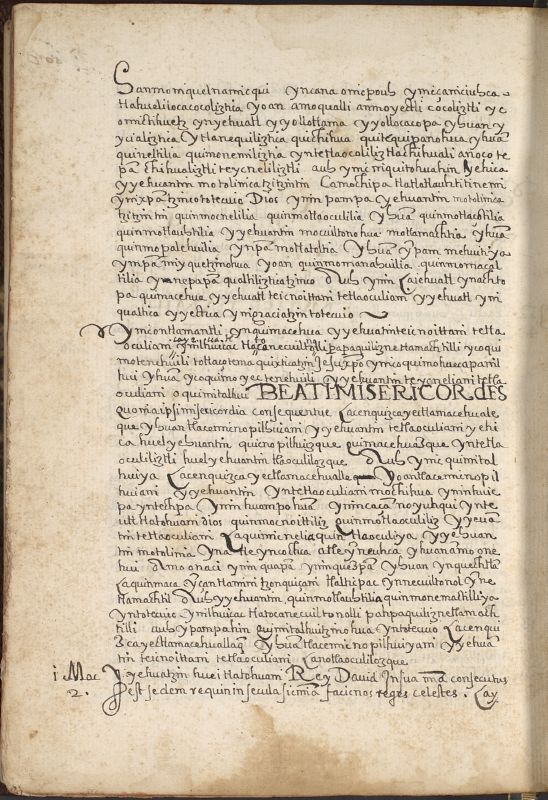 Sanno moquelnamicqui yncana omicpouh ymicaniciuhca
tlahuelilocacocoliztica yoan amoqualli anmoyectli cocoliztli yc
omictihuetz ynyehuatl yyollotlama yyollocacopa yhuan y
ycializtica ytlanequiliztica quichihua quitequipanohua yhuā
quineltilia quimonemiliztia yntetlaocoliliztlachihuali añoço te
pā chihualiztli teycneliliztli auh ymiquitohuahin yehica
yyehuantin motolinicatzitzintin Camochipa tlatlatlauhtitinemi
ynixpātzinco totecuio Dios ynin pampa yehuantin motolinica
tzitzintin quimocnelilia quinmotlaocolilia yhuā quinmotlachtilia
quinmotlauhtilia yyehuantin mocuiltonohua motlamachtia yhuā
quinmopalehuilia ynpā mottateltia yhuā ypam mehuitiya
ympam miyquetzinohua yoan quinmomanahuilia quinmomacal
tilia ynanepapā qualtiliztica Auh ynin Cayehuatl ynachto
pa quimacehua yyehuatl teicnoittani tetlaocoliani yyehuatl yni
qualtica yyectica ymizacia totecuio
Ynicontlamantli ynquimacehua yyehuatinteicnoittani tetla
ocoliani ynilhuicac tlatocanecuiltonolli papaquiliznetlamachtilli ycoqui
motenehuili totlaçotema quixticatzin Jesuxpō ynicoquimohuecapanil
hui yhuā ycoquimoyectenehuili yyehuantin teycneliani tetla
ocoliani oquimitalhui BEATI MISERICORDES
quoniā ipsi misericordia consequentur Lacenquizca yectlamacehuale
que yhuan tlacemicnopilhuiani yyehuantin tetlaocoliani yehi
ca huelyehuantin quicnopilhuizque quimacehuazque yntetla
ocoliliztli huelyehuantin tlaocolilozque Auh ynic quimital
huiya Lacenquizca yectlamacehualle yoan tlacemicnopil
huiani yyehuantin yntetlaocoliani mochihua yninhuic
pa yntechpa ynin huampohuā ynincaca noyuhqui ynte
uctlatohuani dios quinmocnoittiliz quinmotlaocoliz yyehuā
tin tetlaocoliani Laquimicnelia quintlaocoliya yyehuan
tin motolinia yna tleyncochca atle ynneuhca yhuanamo one
hui Amo onaci ynin quapā yninquezpā yhuan ynquechtlā
Laquinmaca ycantlamini tzonquiçani tlalticpac ynnecuiltonol yne
tlamachtil Auh yyehuantin quinmotlauhtilia quinmonemactiliya
yntotecuio ynilhuicac tlatocanecuiltonolli pahpaquiliznetlamach
tilli auh ypampahin quimitalhuitzinohua yntotecuio Lacenqui
zca yectlamacehuallaq yhuā tlacemicnopilhuiyani yyehuā
tin teicnoittani tetlaocoliani Canotlaocolilozque
i. Mac. 2. Yyehuatzin huei tlatohuani Rey David In sua mīā consecutus
est sedem regni in secula sic miā facienos reges celestes. Cay